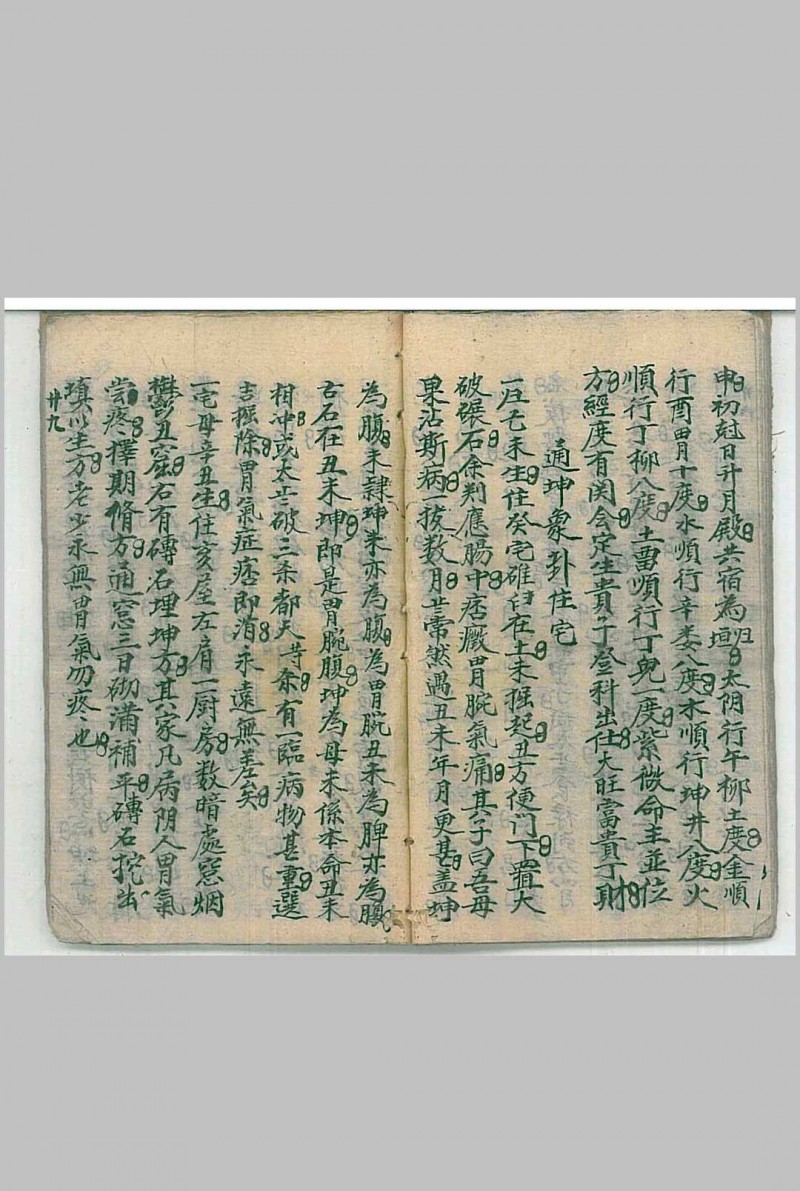 申初尅日升月殿共宿為归垣太阴行午柳土度金順
行酉胃十度水順行辛娄八度木順行坤井八度火
順行丁柳八度土畄順行丁兔一度紫微命主並位
方經度有関会定生貴子登科出仕大旺富貴丁財
通坤象卦住宅
一归乞未生住癸宅碓臼在土未掘起丑方便門下置大
破碾石余判應腸中痞癥胃腕氣痛其子曰吾母
果沾斯病一拔数月常然遇丑未年月更甚盖坤
為腹未隸坤未亦為腹為胃腕丑未為脾亦為腹
右石在丑未坤即是胃腕腹坤為母未係本命丑未
相冲或太岁破三条都天等条有一臨病物甚重選
吉掘除胃氣症痞即消永遠無差矣
一宅母辛丑生住亥屋左肩一厨房数暗處窓烟
鬱丑窟右有磚石埋坤方其家凡病阴人胃氣
常疼擇期脩方通窓三日砌滿補平磚石挖出
填以生方老少永無胃氣勿疼也
廿九